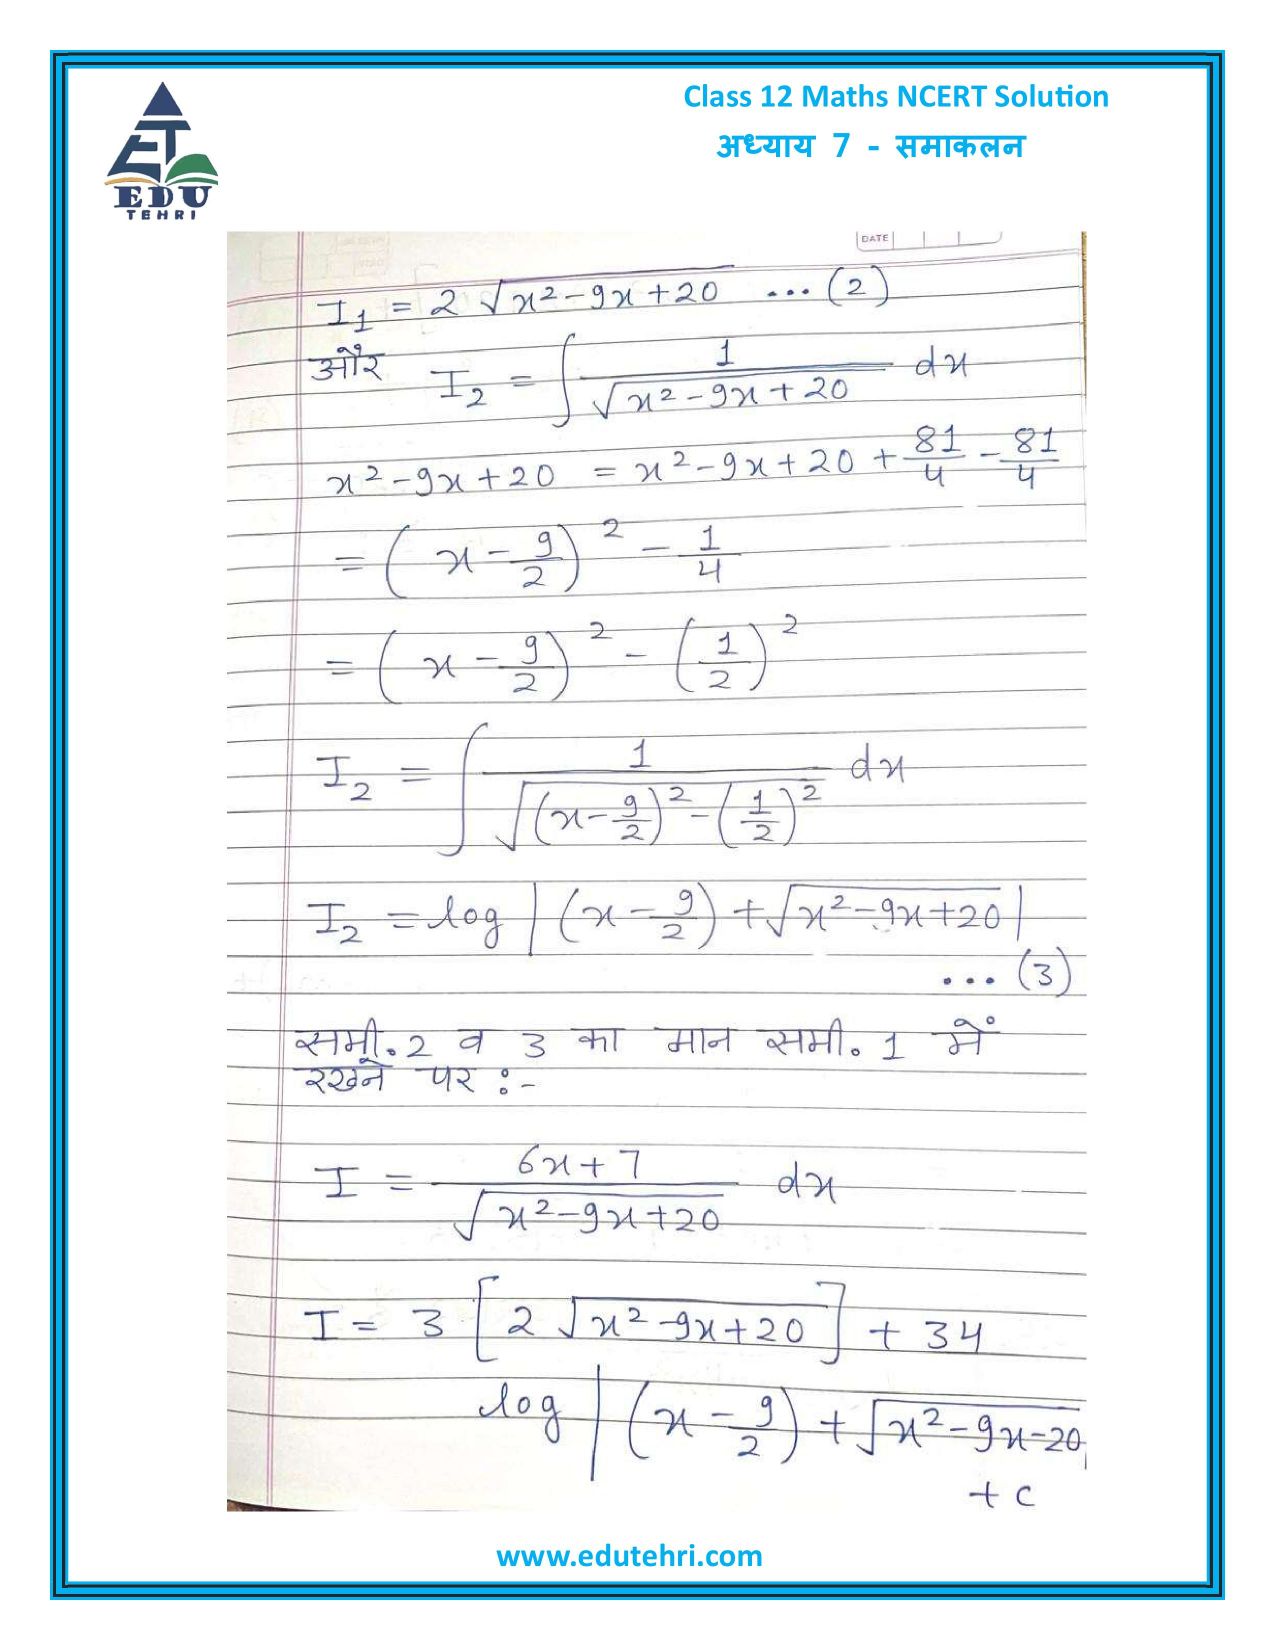 Class 12 Maths NCERT Solution
अध्याय 7 - समाकलन
EDU
TEHRI
DATE
I₁ = 2 √(x² - 9x + 20) ... (2)
और I₂ = ∫ 1/√(x² - 9x + 20) dx
x² - 9x + 20 = x² - 9x + 20 + 81/4 - 81/4
= (x - 9/2)² - 1/4
= (x - 9/2)² - (1/2)²
I₂ = ∫ 1/√((x - 9/2)² - (1/2)²) dx
I₂ = log |(x - 9/2) + √(x² - 9x + 20)|
... (3)
समी. 2 व 3 का मान समी. 1 में
रखने पर :-
I = (6x + 7)/√(x² - 9x + 20) dx
I = 3 [2 √(x² - 9x + 20)] + 34
log |(x - 9/2) + √(x² - 9x - 20)|
+ c
www.edutehri.com